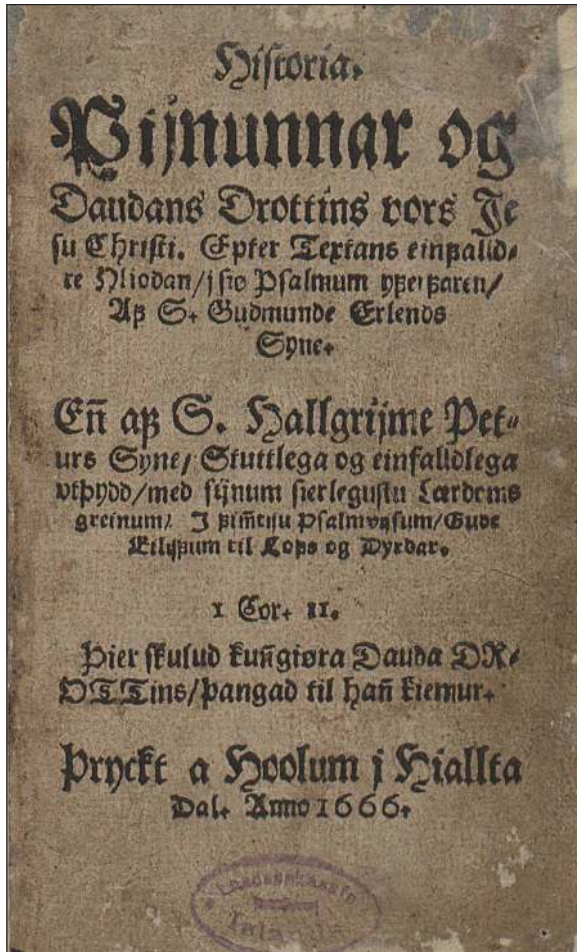 Historia.
Pijnunnar og
Daudans Drottins vors Je
su Christi. Epter Textans einfalld-
re Hliodan/ j siø Psalmum yferfaren/
Af S. Gudmunde Erlends
Syne.
En̄ af S. Hallgrijme Pet-
urs Syne/ Stuttlega og einfalldlega
vtþydd/ med sijnum sierlegustu Lærdoms
greinum/ J fim̄tiju Psalmvijsum/ Gude
Eilijfum til Lofs og Dyrdar.
1 Cor. 11.
Þier skulud kun̄giøra Dauda DR-
OTTins/ þangad til han̄ kiemur.
Þryckt a Hoolum j Hiallta
Dal. Anno 1666.
Landsbókasafn
Íslands